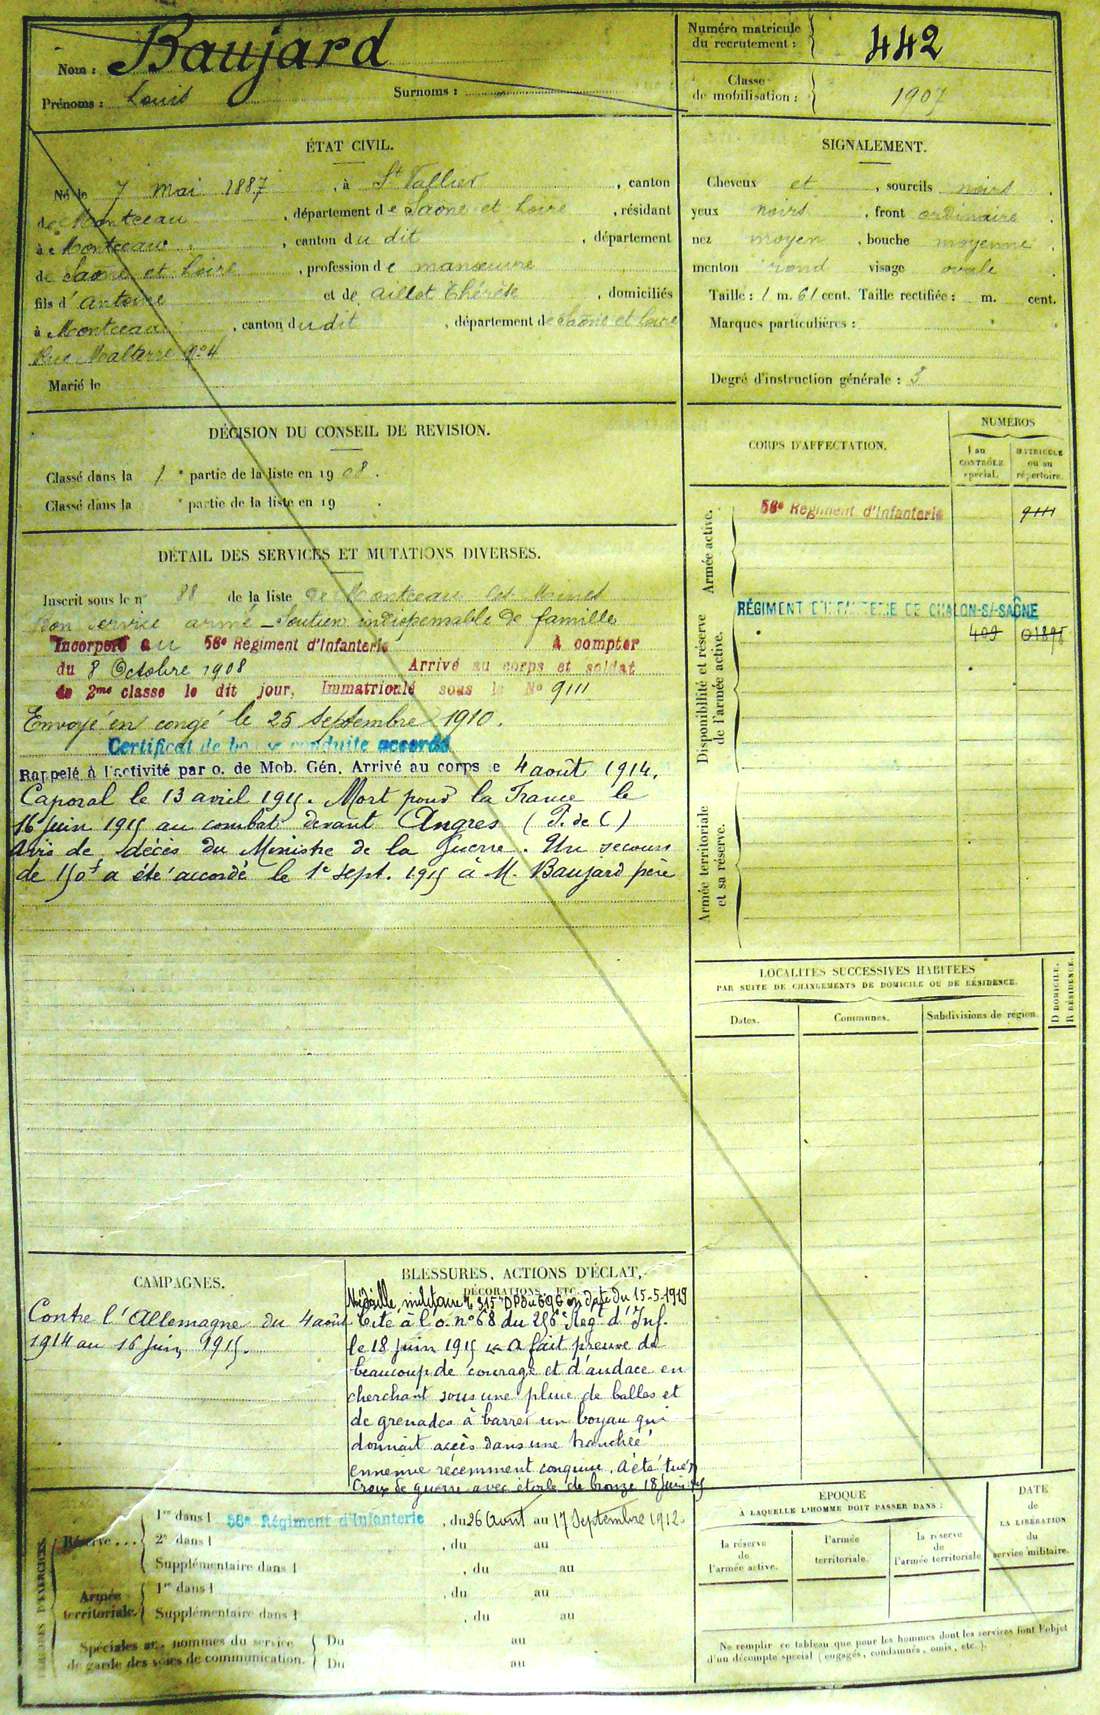 Nom : Baujard
Prénoms : Louis Surnoms :
Numéro matricule
du recrutement : 442
Classe
de mobilisation : 1907
ÉTAT CIVIL.
Né le 7 mai 1887, à St Vallier, canton
de Montceau, département de Saône et Loire, résidant
à Montceau, canton du dit, département
de Saône et Loire, profession de manœuvre
fils d'Antoine et de Aillot Thérèse, domiciliés
à Montceau, canton du dit, département de Saône et Loire
Rue nº 4
Marié le
SIGNALEMENT.
Cheveux et, sourcils noirs.
yeux noirs, front ordinaire.
nez moyen, bouche moyenne.
menton rond visage ovale.
Taille : 1 m. 61 cent. Taille rectifiée : m. cent.
Marques particulières :
Degré d'instruction générale : 3
DÉCISION DU CONSEIL DE REVISION.
Classé dans la 1e partie de la liste en 1908.
Classé dans la e partie de la liste en 19 .
DÉTAIL DES SERVICES ET MUTATIONS DIVERSES.
Inscrit sous le nº 88 de la liste de Montceau les Mines
Bon service armé - Soutien indispensable de famille
Incorporé au 56e Régiment d'Infanterie à compter
du 8 Octobre 1908 Arrivé au corps et soldat
de 2me classe le dit jour, Immatriculé sous le No 9111
Envoyé en congé le 25 Septembre 1910.
Certificat de bonne conduite accordé
Rappelé à l'activité par o. de Mob. Gén. Arrivé au corps le 4 août 1914.
Caporal le 13 avril 1915. Mort pour la France le
16 juin 1915 au combat devant Angres (P. de C)
Avis de décès du Ministre de la Guerre. Un secours
de 150f a été accordé le 1e sept. 1915 à M. Baujard père
CORPS D'AFFECTATION.
NUMÉROS
au
CONTRÔLE
spécial.
MATRICULE
ou au
répertoire.
Armée active.
56e Régiment d'Infanterie 9111
Disponibilité et réserve
de l'armée active.
RÉGIMENT D'INFANTERIE DE CHALON-S/-SAÔNE
409 01898
Armée territoriale
et sa réserve.
LOCALITÉS SUCCESSIVES HABITÉES
PAR SUITE DE CHANGEMENTS DE DOMICILE OU DE RÉSIDENCE.
Dates. Communes. Subdivisions de région. D DOMICILE. R RÉSIDENCE.
CAMPAGNES.
Contre l'Allemagne du 4 août
1914 au 16 juin 1915.
BLESSURES, ACTIONS D'ÉCLAT,
DÉCORATIONS, ETC.
Médaille militaire en date du 15-5-1919
Cité à l'o. nº 68 du 256e Rég. d'Inf.
le 18 juin 1915 A fait preuve de
beaucoup de courage et d'audace en
cherchant sous une pluie de balles et
de grenades à barrer un boyau qui
donnait accès dans une tranchée
ennemie récemment conquise. A été tué
Croix de guerre avec étoile de bronze 18 juin 15
PÉRIODES D'EXERCICES.
Réserve ... 1re dans l 56e Régiment d'Infanterie, du 26 Août au 17 Septembre 1912.
2e dans l , du au
Supplémentaire dans l , du au
Armée
territoriale. 1re dans l , du au
Supplémentaire dans l , du au
Spéciales aux hommes du service
de garde des voies de communication. Du au
Du au
ÉPOQUE
À LAQUELLE L'HOMME DOIT PASSER DANS :
la réserve
de
l'armée active.
l'armée
territoriale.
la réserve
de
l'armée territoriale
DATE
de
LA LIBÉRATION
du
service militaire.
Ne remplir ce tableau que pour les hommes dont les services font l'objet
d'un décompte spécial (engagés, condamnés, omis, etc.).